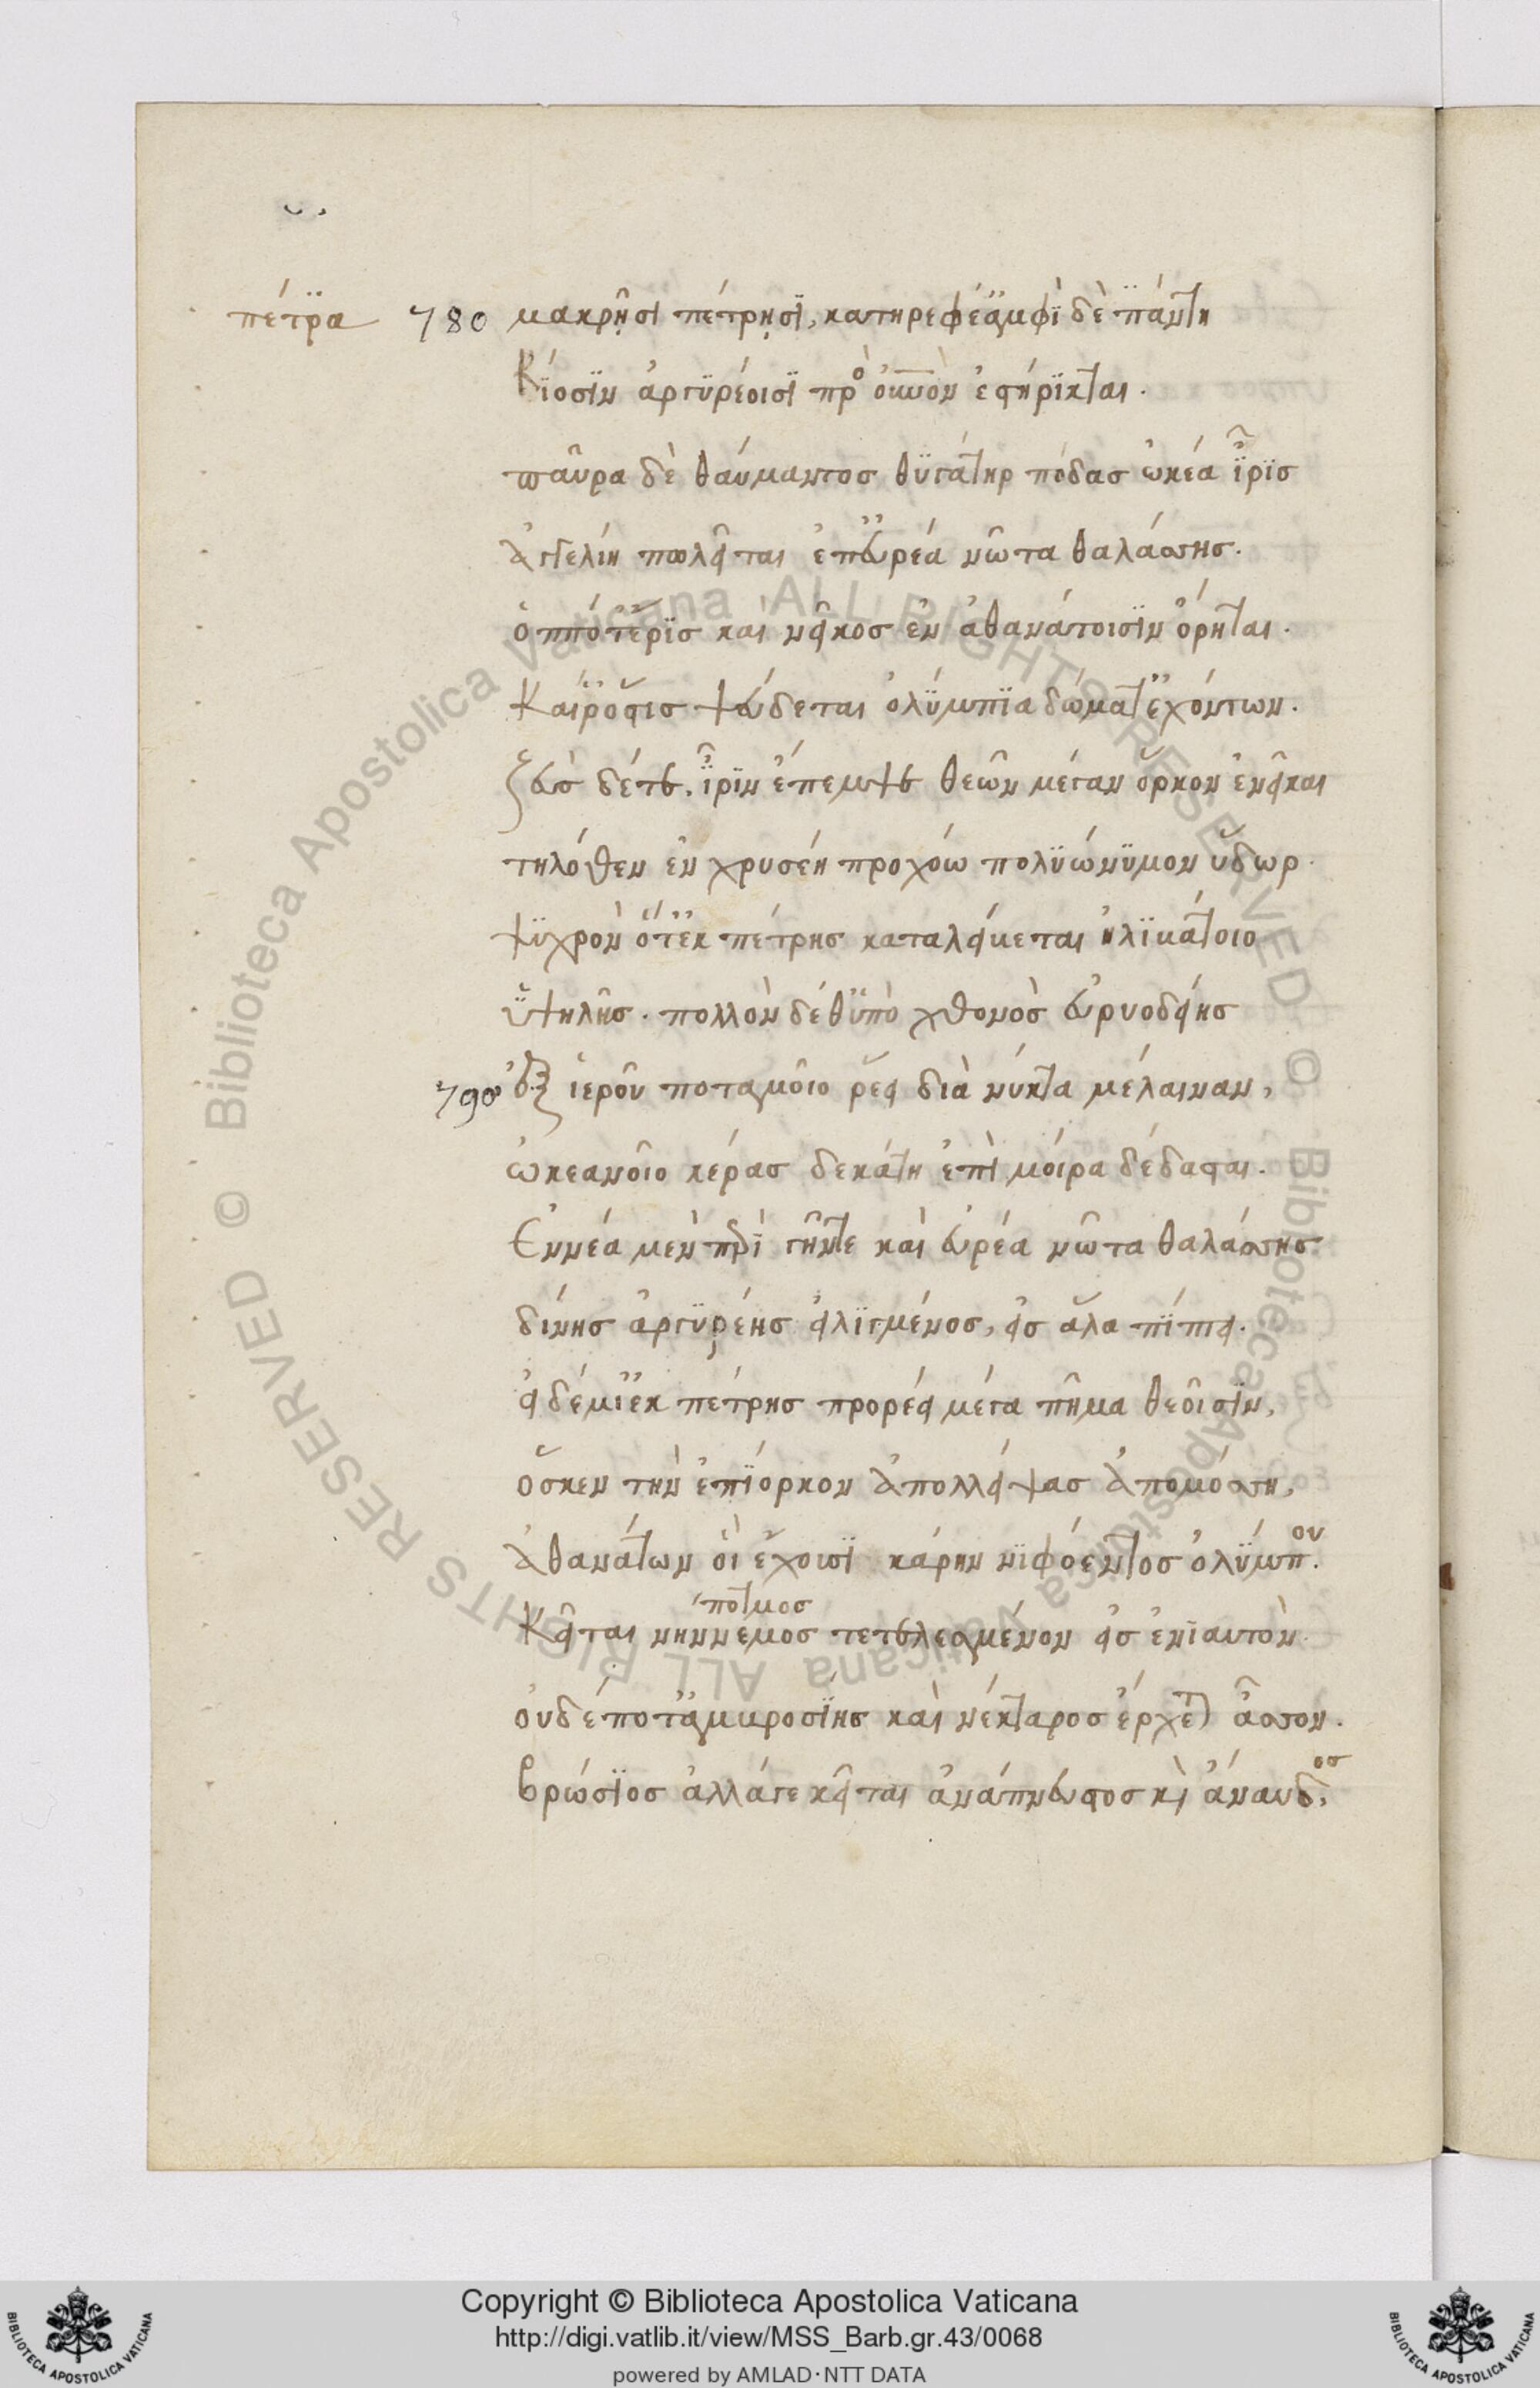 πέτρα 780 μακρῇσι πέτρῃσϊ, κατηρεφέ' ἀμφὶ δὲ πάντη
Κίοσϊν ἀργϋρέοισϊ πρὸ οὐνὸν ἐστήρϊκται.
παῦρα δὲ θαύμαντοσ θϋγάτηρ πόδασ ὠκέα ἶρϊσ
ἀγγελίη πωλεῖται ἐπ' εὐρέα νῶτα θαλάσσησ.
ὁππότ' ἔρϊσ καὶ νεῖκοσ ἐν ἀθανάτοισϊν ὄρηται.
Καί ῥ' ὅστισ ψεύδεται ὀλύμπϊα δώματ' ἐχόντων.
ζεὺσ δέτε. ἶρϊν ἔπεμψε θεῶν μέγαν ὅρκον ἐνεῖκαι
τηλόθεν ἐν χρυσέη προχόω πολϋώνϋμον ὕδωρ.
ψϋχρὸν ὅτ' ἐκ πέτρησ καταλείκεται ἠλϊκάτοιο
ὕψηλῆσ. πολλὸν δέθ' ὑπὸ χθονὸσ εὐρυοδείησ
790 ἐξ ἱεροῦ ποταμοῖο ῥέει διὰ νύκτα μέλαιναν,
ὠκεανοῖο κέρασ δεκάτη ἐπὶ μοίρα δέδασται.
Ἐννέα μὲν περὶ γῆντε καὶ εὐρέα νῶτα θαλάσσησ
δίνησ ἀργϋρέησ εἰλϊγμένοσ, εἰσ ἅλα πίπτει.
εἰ δέμι' ἐκ πέτρησ προρέει μέγα πῆμα θεοῖσϊν,
ὅσκεν τὴν ἐπϊόρκον ἀπολλείψασ ἀπομόσση,
Ἀθανάτων οἱ ἔχοισϊ κάρην νϊφόεντοσ ὀλύμπου.
πότμοσ
Κεῖται νηννέμοσ τετελεσμένον εἰσ ἐνϊαυτὸν.
οὐδέποτ' ἀμβροσίησ καὶ νέκταροσ ἔρχεται ἆσσον.
βρώσϊοσ ἀλλάγε κεῖται ἀνάπνευστοσ κὶ ἄναυδοσ,
Copyright © Biblioteca Apostolica Vaticana
http://digi.vatlib.it/view/MSS_Barb.gr.43/0068
powered by AMLAD·NTT DATA
BIBLIOTECA APOSTOLICA VATICANA
BIBLIOTECA APOSTOLICA VATICANA
© Biblioteca Apostolica Vaticana ALL RIGHTS RESERVED
© Biblioteca Apostolica Vaticana ALL RIGHTS RESERVED